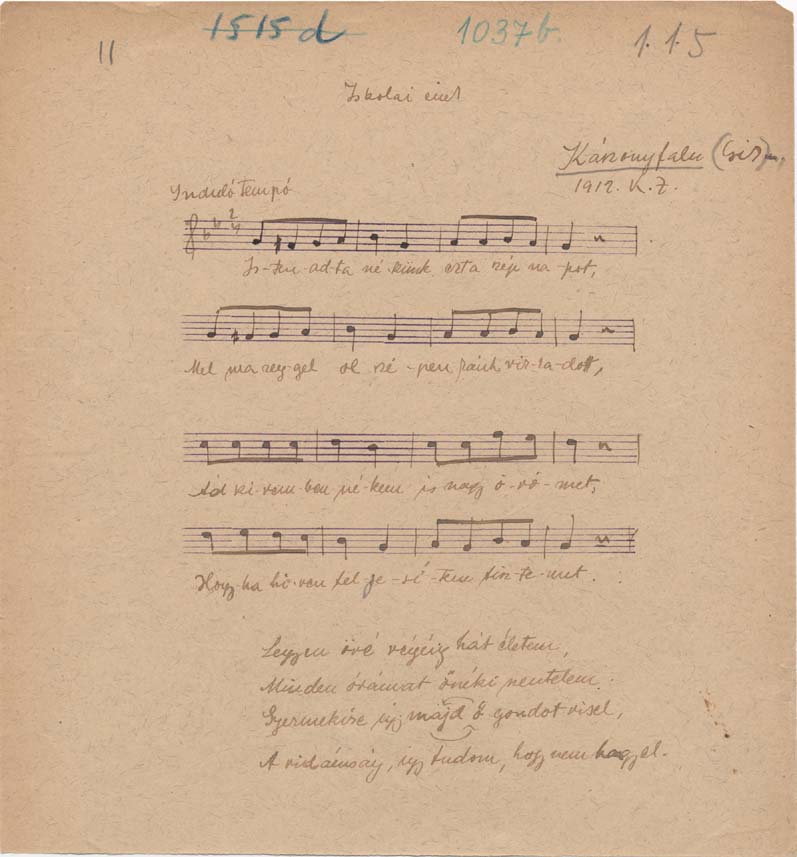 1515d 1037b. 1.1.5
11
Iskolai ének
Kászonyfalu (Csis)
1912. K. Z.
Induló tempó
2/4
Is-ten-ad-ta né-künk ezt a szép na-pot,
Mel ma reg-gel ol szé-pen ránk vir-ra-dott,
Ád ki-vem-ben né-kem is nagy ö-rö-met,
Hogy-ha hi-ven tel-je-si-tem tisz-te-met.
Legyen övé végéig hát életem,
Minden órámat őnéki szentelem.
Gyermekire így majd ő gondot visel,
A vidámság, így tudom, hogy nem hagy el.